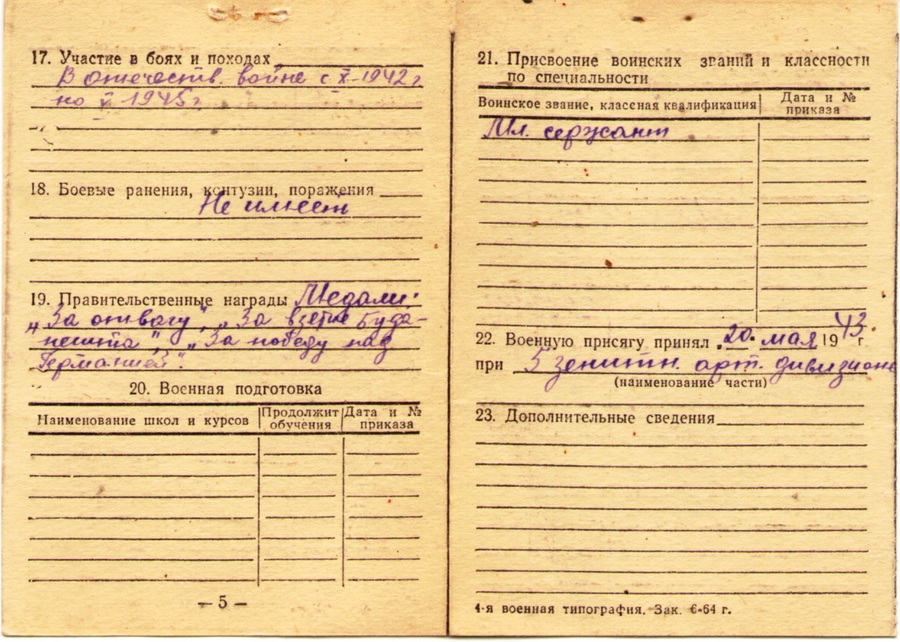 17. Участие в боях и походах
В отечеств. войне с X-1942 г
по V 1945 г
18. Боевые ранения, контузии, поражения
Не имеет
19. Правительственные награды Медали:
„За отвагу", „За взятие Буда-
пешта", „За победу над
Германией".
20. Военная подготовка
Наименование школ и курсов Продолжит обучения Дата и № приказа
— 5 —
21. Присвоение воинских званий и классности
по специальности
Воинское звание, классная квалификация Дата и № приказа
Мл. сержант
22. Военную присягу принял „20" мая 1943 г.
при 5 зенитн. арт. дивизионе
(наименование части)
23. Дополнительные сведения
4-я военная типография. Зак. 6-64 г.